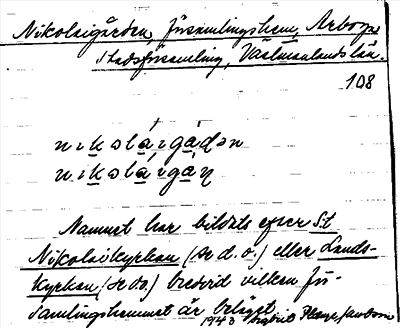 Nikolaigården, församlingshem, Arboga
stadsförsamling, Västmanlands län.
108
nikolaigådən
nikolaigån
Namnet har bildats efter S:t
Nikolaikyrkan (se d.o.) eller Lands-
kyrkan (se do.) bredvid vilken för-
samlingshemmet är beläget.
1943